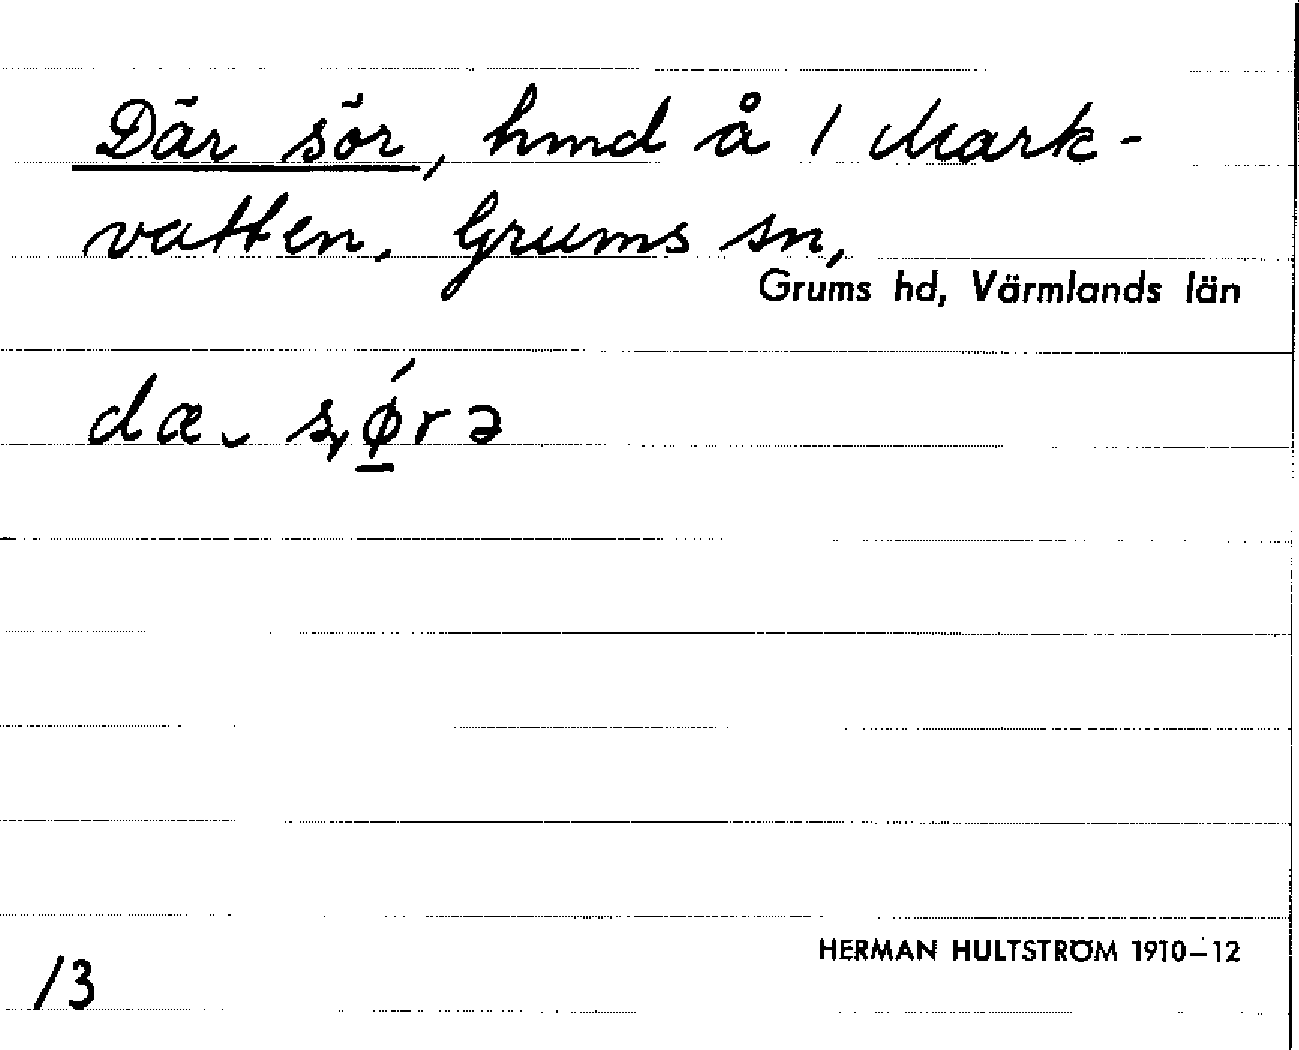 Där sör, hmd å 1 Mark-
vatten, Grums sn,
Grums hd, Värmlands län
dæ˯ s͵ǿ̠rə
HERMAN HULTSTRÖM 1910–12
/3